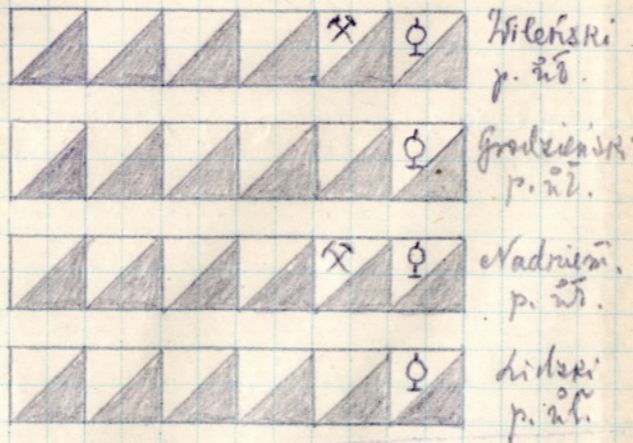 Wileński
p. uł.
Grodzieński
p. uł.
Nadniem.
p. uł.
Lidzki
p. uł.